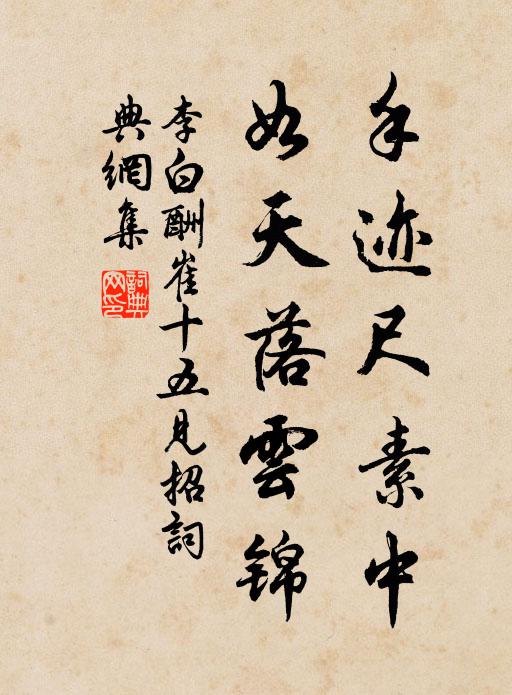 手迹尺素中
如天落雲錦
李白酬崔十五見招詞
典網集
詞典网印